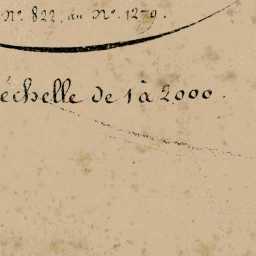 N° 822, au N° 1279.
échelle de 1 à 2000.